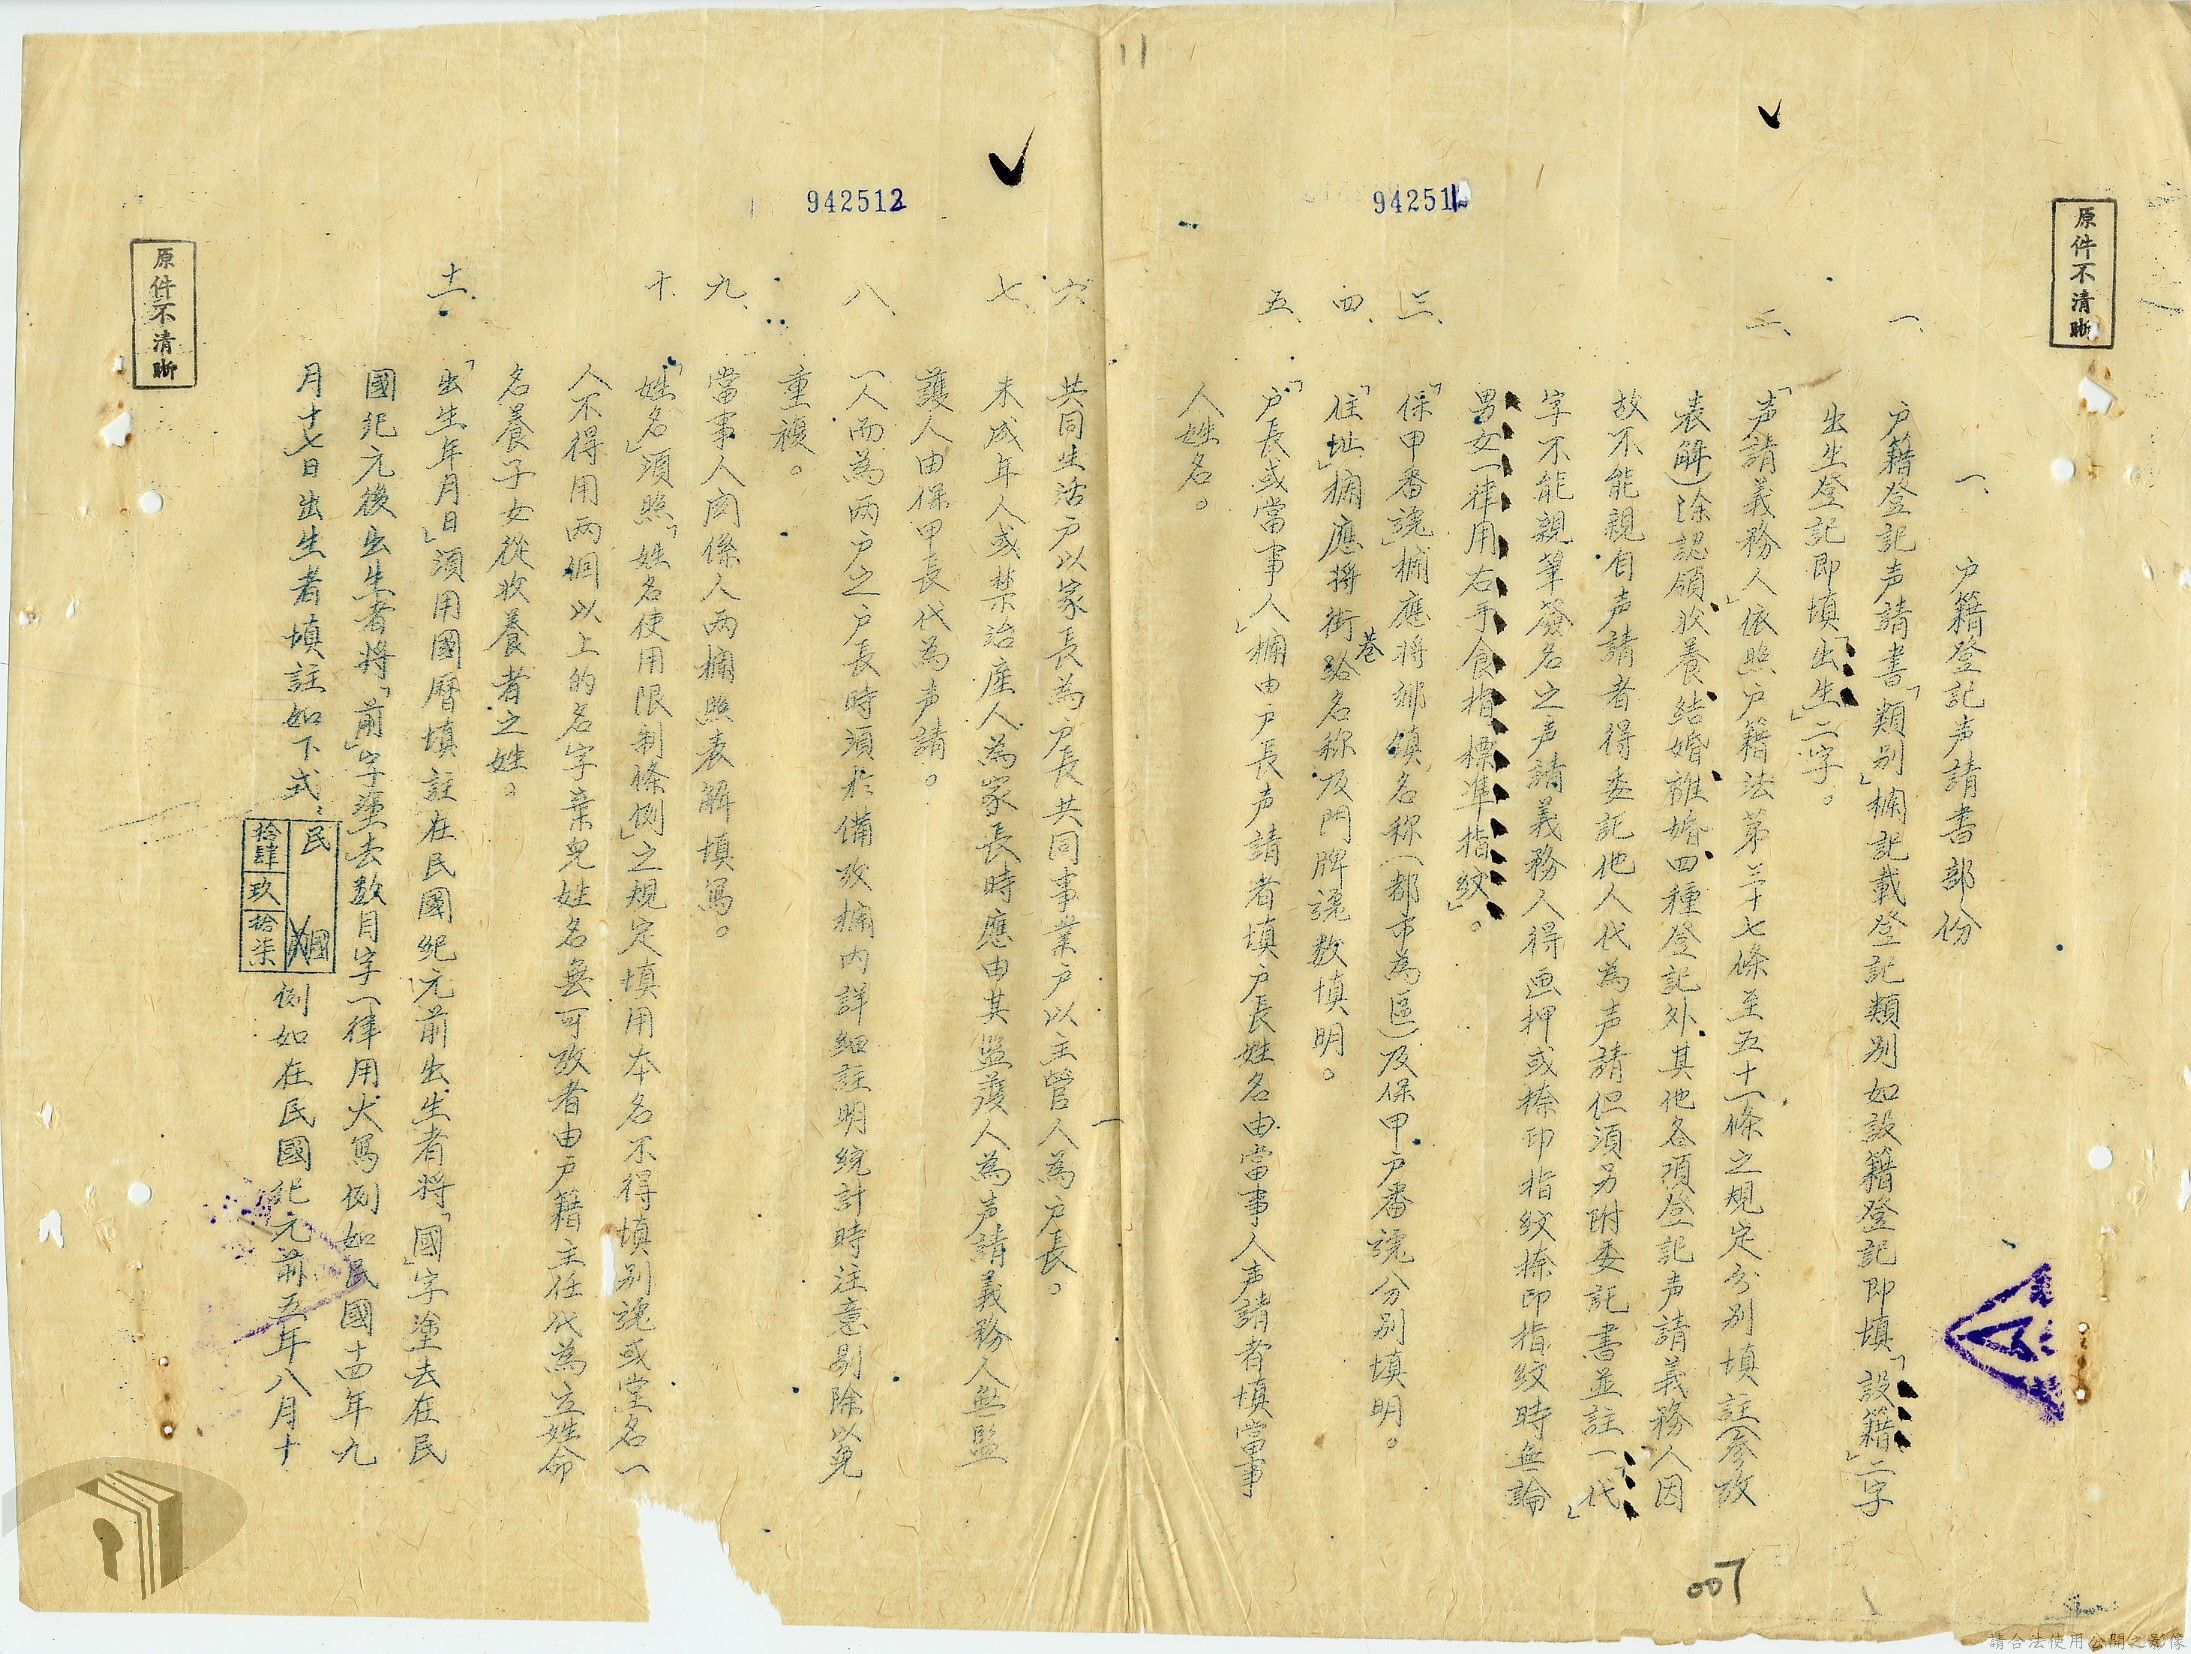 原件不清晰
一、戶籍登記声請書部份
一、戶籍登記声請書「類別」欄記載登記類別如設籍登記即填「設籍」二字
出生登記即填「出生」二字。
二、「声請義務人」依照戶籍法第三十七條至五十一條之規定分別填註(參攷
表解)除認領收養結婚離婚四種登記外其他各項登記声請義務人因
故不能親自声請者得委託他人代為声請但須另附委託書並註一「代」
字不能親筆簽名之声請義務人得画押或捺印指紋捺印指紋時無論
男女一律用右手食指標準指紋」。
三、「保甲番號」欄應將鄉鎮名称(都市為區)及保甲戶番號分別填明。
四、「住址」欄應將街路巷名称及門牌號数填明。
五、「戶長或當事人」欄由戶長声請者填戶長姓名由當事人声請者填當事
人姓名。
942511
11
六、共同生活戶以家長為戶長共同事業戶以主管人為戶長。
七、未成年人或禁治產人為家長時應由其監護人為声請義務人無監
護人由保甲長代為声請。
八、一人而為兩戶之戶長時須於備攷欄內詳細註明統計時注意剔除以免
重複。
九、當事人関係人兩欄照表解填寫。
十、「姓名」須照「姓名使用限制條例」之規定填用本名不得填別號或堂名一
人不得用兩個以上的名字棄兒姓名無可攷者由戶籍主任代為立姓命
名養子女從收養者之姓。
十一、「出生年月日」須用國曆填註在民國紀元前出生者將「國」字塗去在民
國紀元後出生者將「前」字塗去数目字一律用大寫例如民國十四年九
月十七日出生者填註如下式:
民國
拾肆 玖 拾柒
例如在民國紀元前五年八月十
942512
原件不清晰
007
請合法使用公開之影像